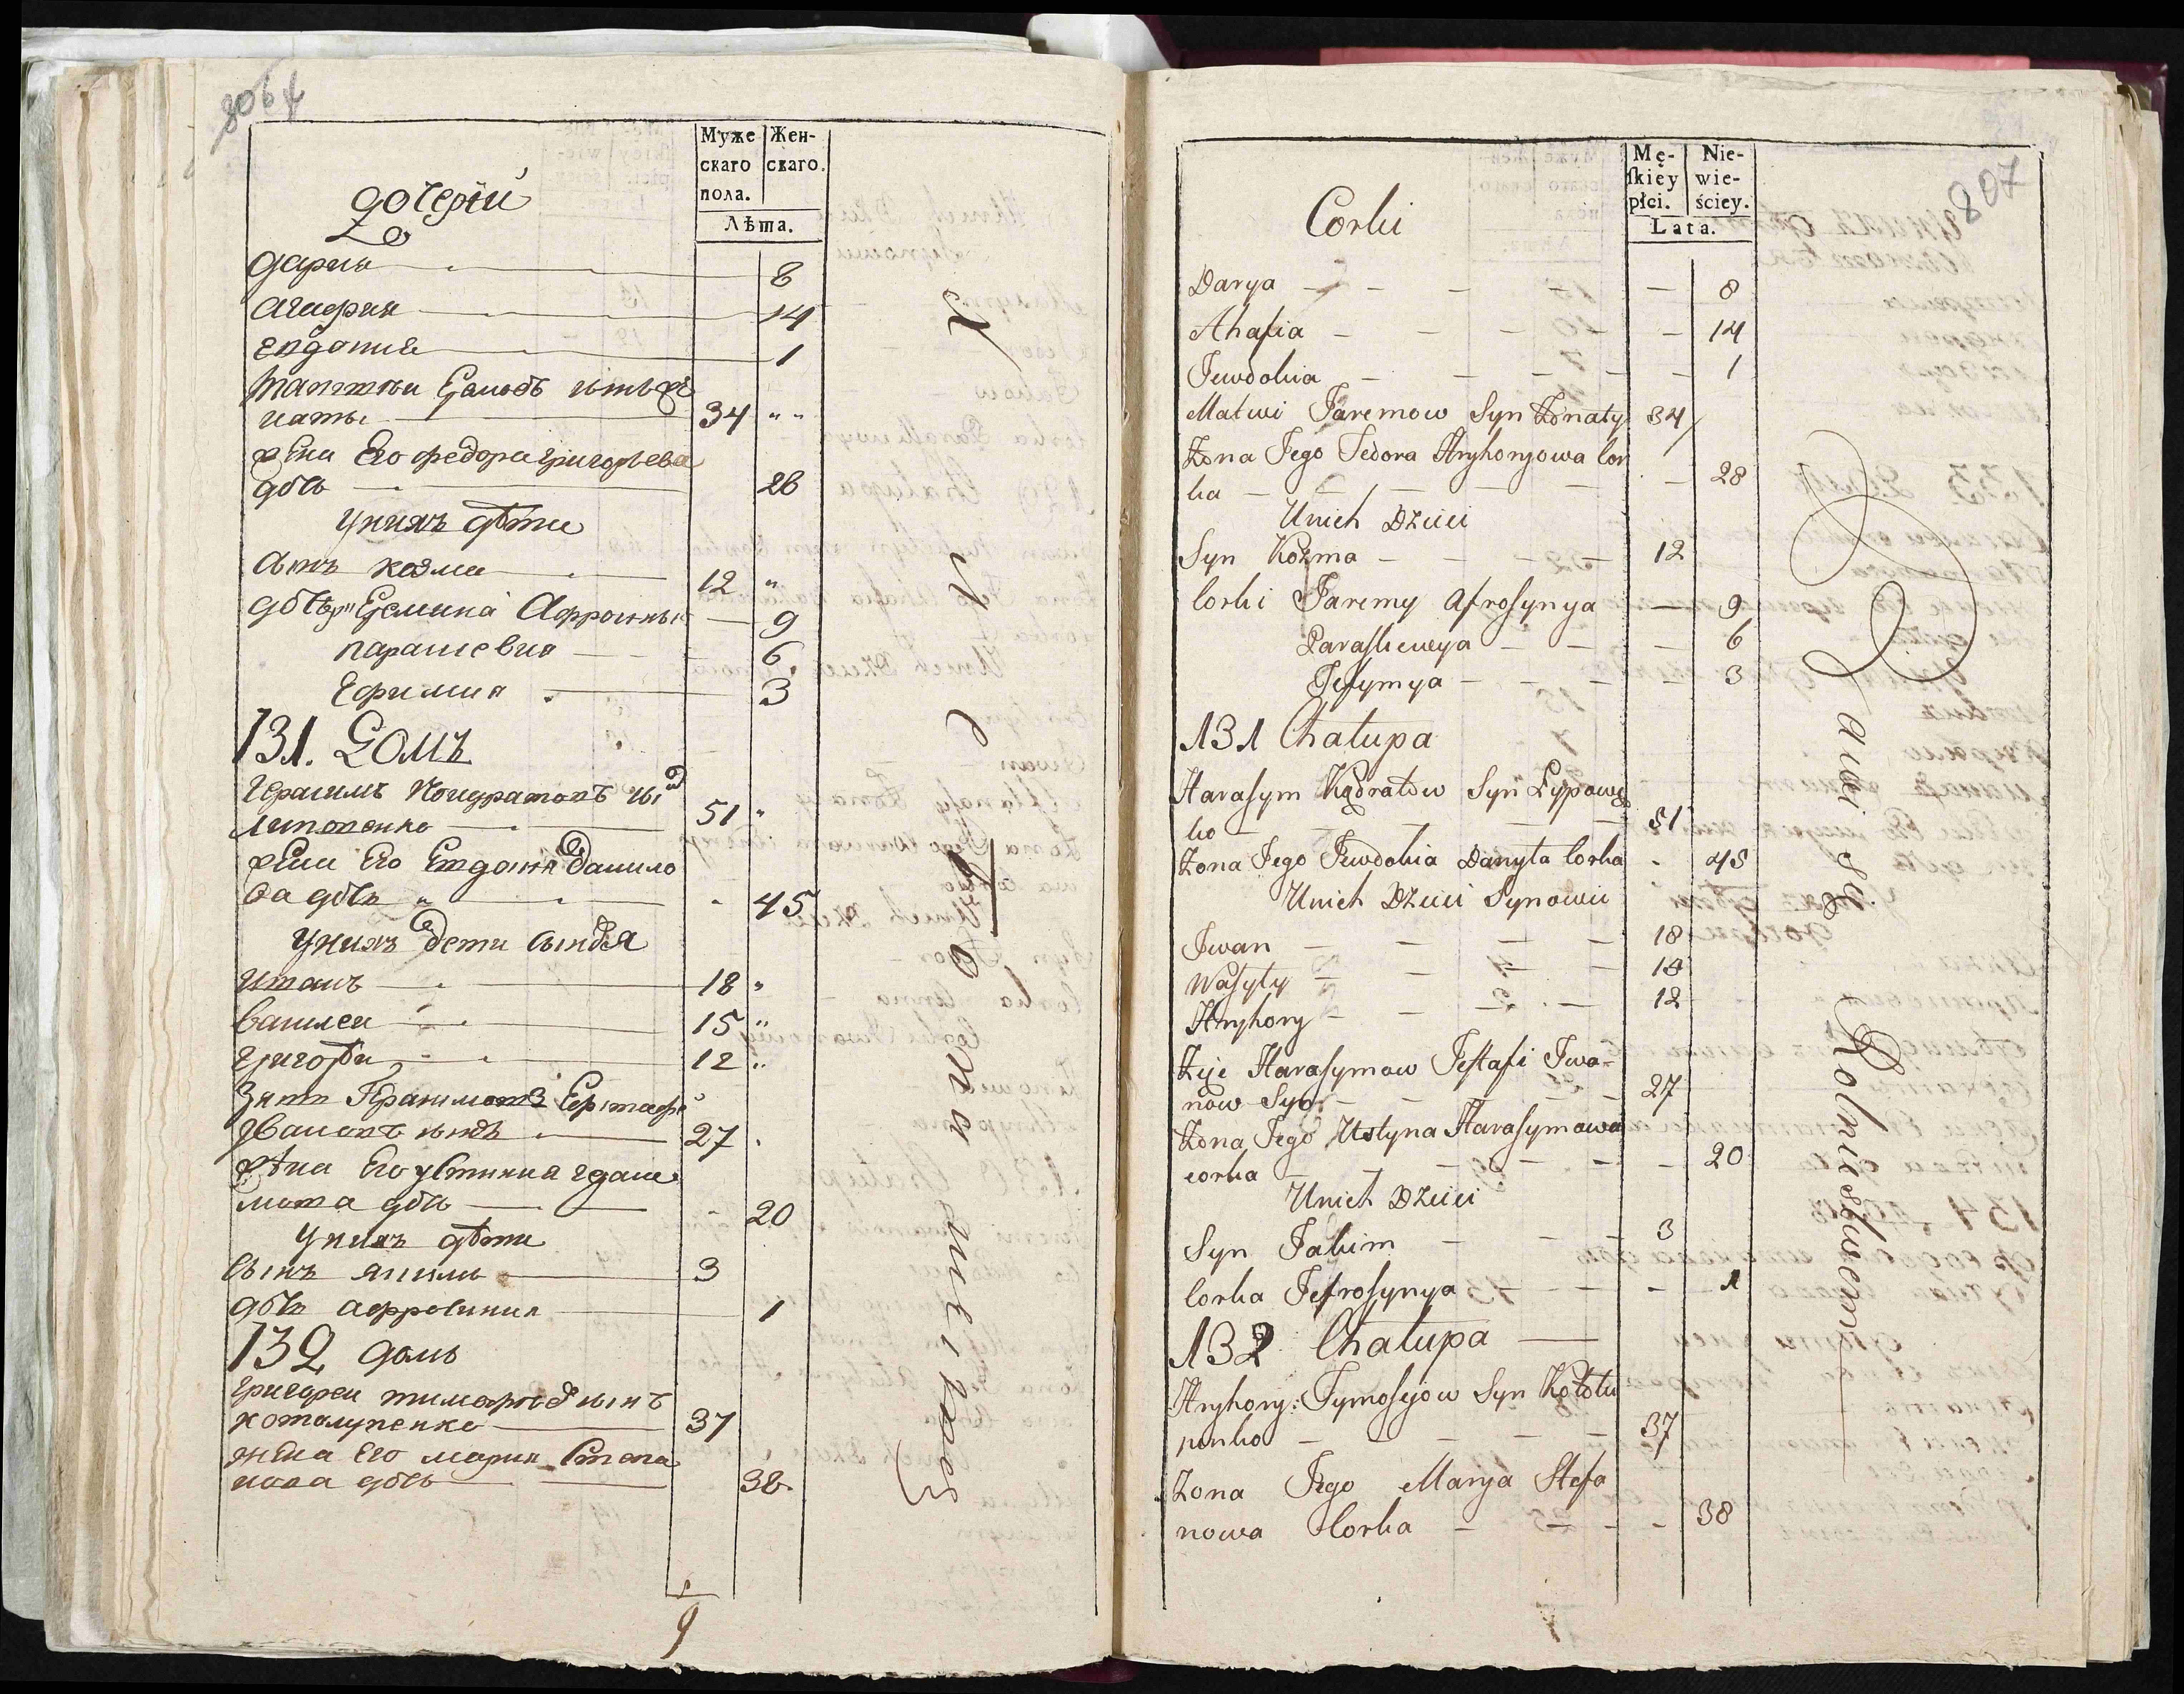 806
Муже
скаго
пола.
Жен-
скаго.
Лѣта.
дочерїи
дария 8
агафия 14
евдокия 1
сынъ же
наты 34
жена Его федора григорьева
дочь 28
У нихъ дѣти
Сынъ козма 12
Афросинья 9
парасковия 6
Ефимия 3
131. Домъ
Герасимъ Кондратовъ сынъ
Липовенко 51
жена Его Евдокия данило
ва дочь 45
У нихъ дети сыновя
Иванъ 18
Василеи 15
Григореи 12
Зять Герасимовъ Евстафеи
Ивановъ сынъ 27
жена Его устиния гараси
мова дочь 20
У нихъ дѣти
Сынъ якимъ 3
дочь афросиния 1
132 домъ
григореи тимофеевъ сынъ
котолупенко 37
жена Его мария Степа
нова дочь 38
9
807
Mę-
skiey
płci.
Nie-
wie-
ściey.
Lata.
Corki
Darya 8
Ahafia 14
Jewdokia 1
Matwi Jaremow Syn Żonaty 34
Żona Jego Fedora Hryhoryowa Cor
ka 28
Unich Dzieci
Syn Kozma 12
Corki Jaremy Afrosynya 9
Paraskiewya 6
Jefymya 3
131 Chalupa
Harasym Kądratow Syn Lypowe
ko 51
Żona Jego Jewdokia Danyla Corka 45
Unich Dzieci Synowie
Iwan 18
Wasyly 15
Hryhory 12
Zięć Harasymow Jestafi Iwa-
now Syn 27
Żona Jego Ustyna Harasymowa
corka 20
Unich Dzieci
Syn Jakim 3
Corka Jefrosynya 1
132 Chalupa
Hryhory Tymofyiow Syn Kotolu
penko 37
Żona Jego Marya Stefa
nowa Corka 38
Bawi się Rolnictwem